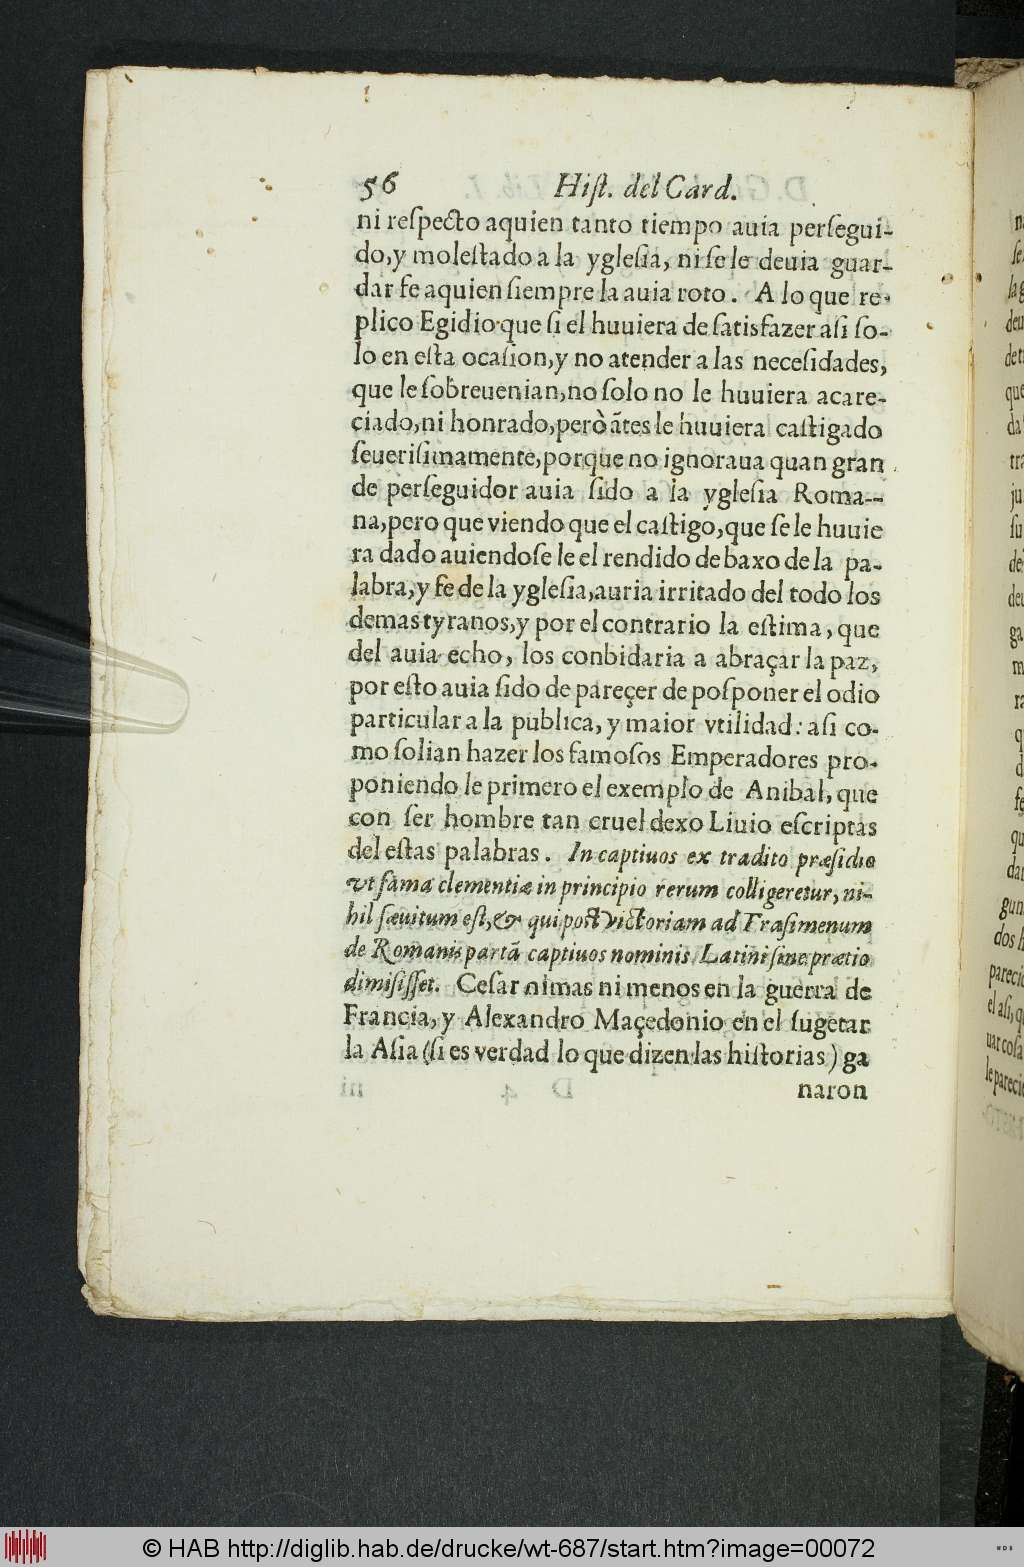 56 Hiſt. del Card.
ni reſpecto aquien tanto tiempo auia perſegui-
do,y moleſtado a la ygleſia, ni ſe le deuia guar-
dar fe aquien ſiempre la auia roto. A lo que re-
plico Egidio que ſi el huuiera de ſatisfazer aſi ſo-
lo en eſta ocaſion,y no atender a las neceſidades,
que le ſobreuenian,no ſolo no le huuiera acare-
çiado,ni honrado,però ãtes le huuiera caſtigado
ſeueriſimamente,porque no ignoraua quan gran
de perſeguidor auia ſido a la ygleſia Roma--
na,pero que viendo que el caſtigo,que ſe le huuie
ra dado auiendoſe le el rendido debaxo de la pa-
labra,y fe de la ygleſia,auria irritado del todo los
demas tyranos,y por el contrario la eſtima, que
del auia echo, los conbidaria a abraçar la paz,
por eſto auia ſido de pareçer de poſponer el odio
particular a la publica, y maior vtilidad: aſi co-
mo ſolian hazer los famoſos Emperadores pro-
poniendo le primero el exemplo de Anibal, que
con ſer hombre tan cruel dexo Liuio eſcriptas
del eſtas palabras. In captiuos ex tradito præſidio
vt fama clementiæ in principio rerum colligeretur, ni-
hil ſæuitum eſt,& qui poſt victoriam ad Traſimenum
de Romanis partã captiuos nominis Latini ſine prætio
dimiſiſſet. Ceſar nimas ni menos en la guerra de
Francia, y Alexandro Maçedonio en el ſugetar
la Aſia (ſi es verdad lo que dizen las hiſtorias) ga
naron
© HAB http://diglib.hab.de/drucke/wt-687/start.htm?image=00072